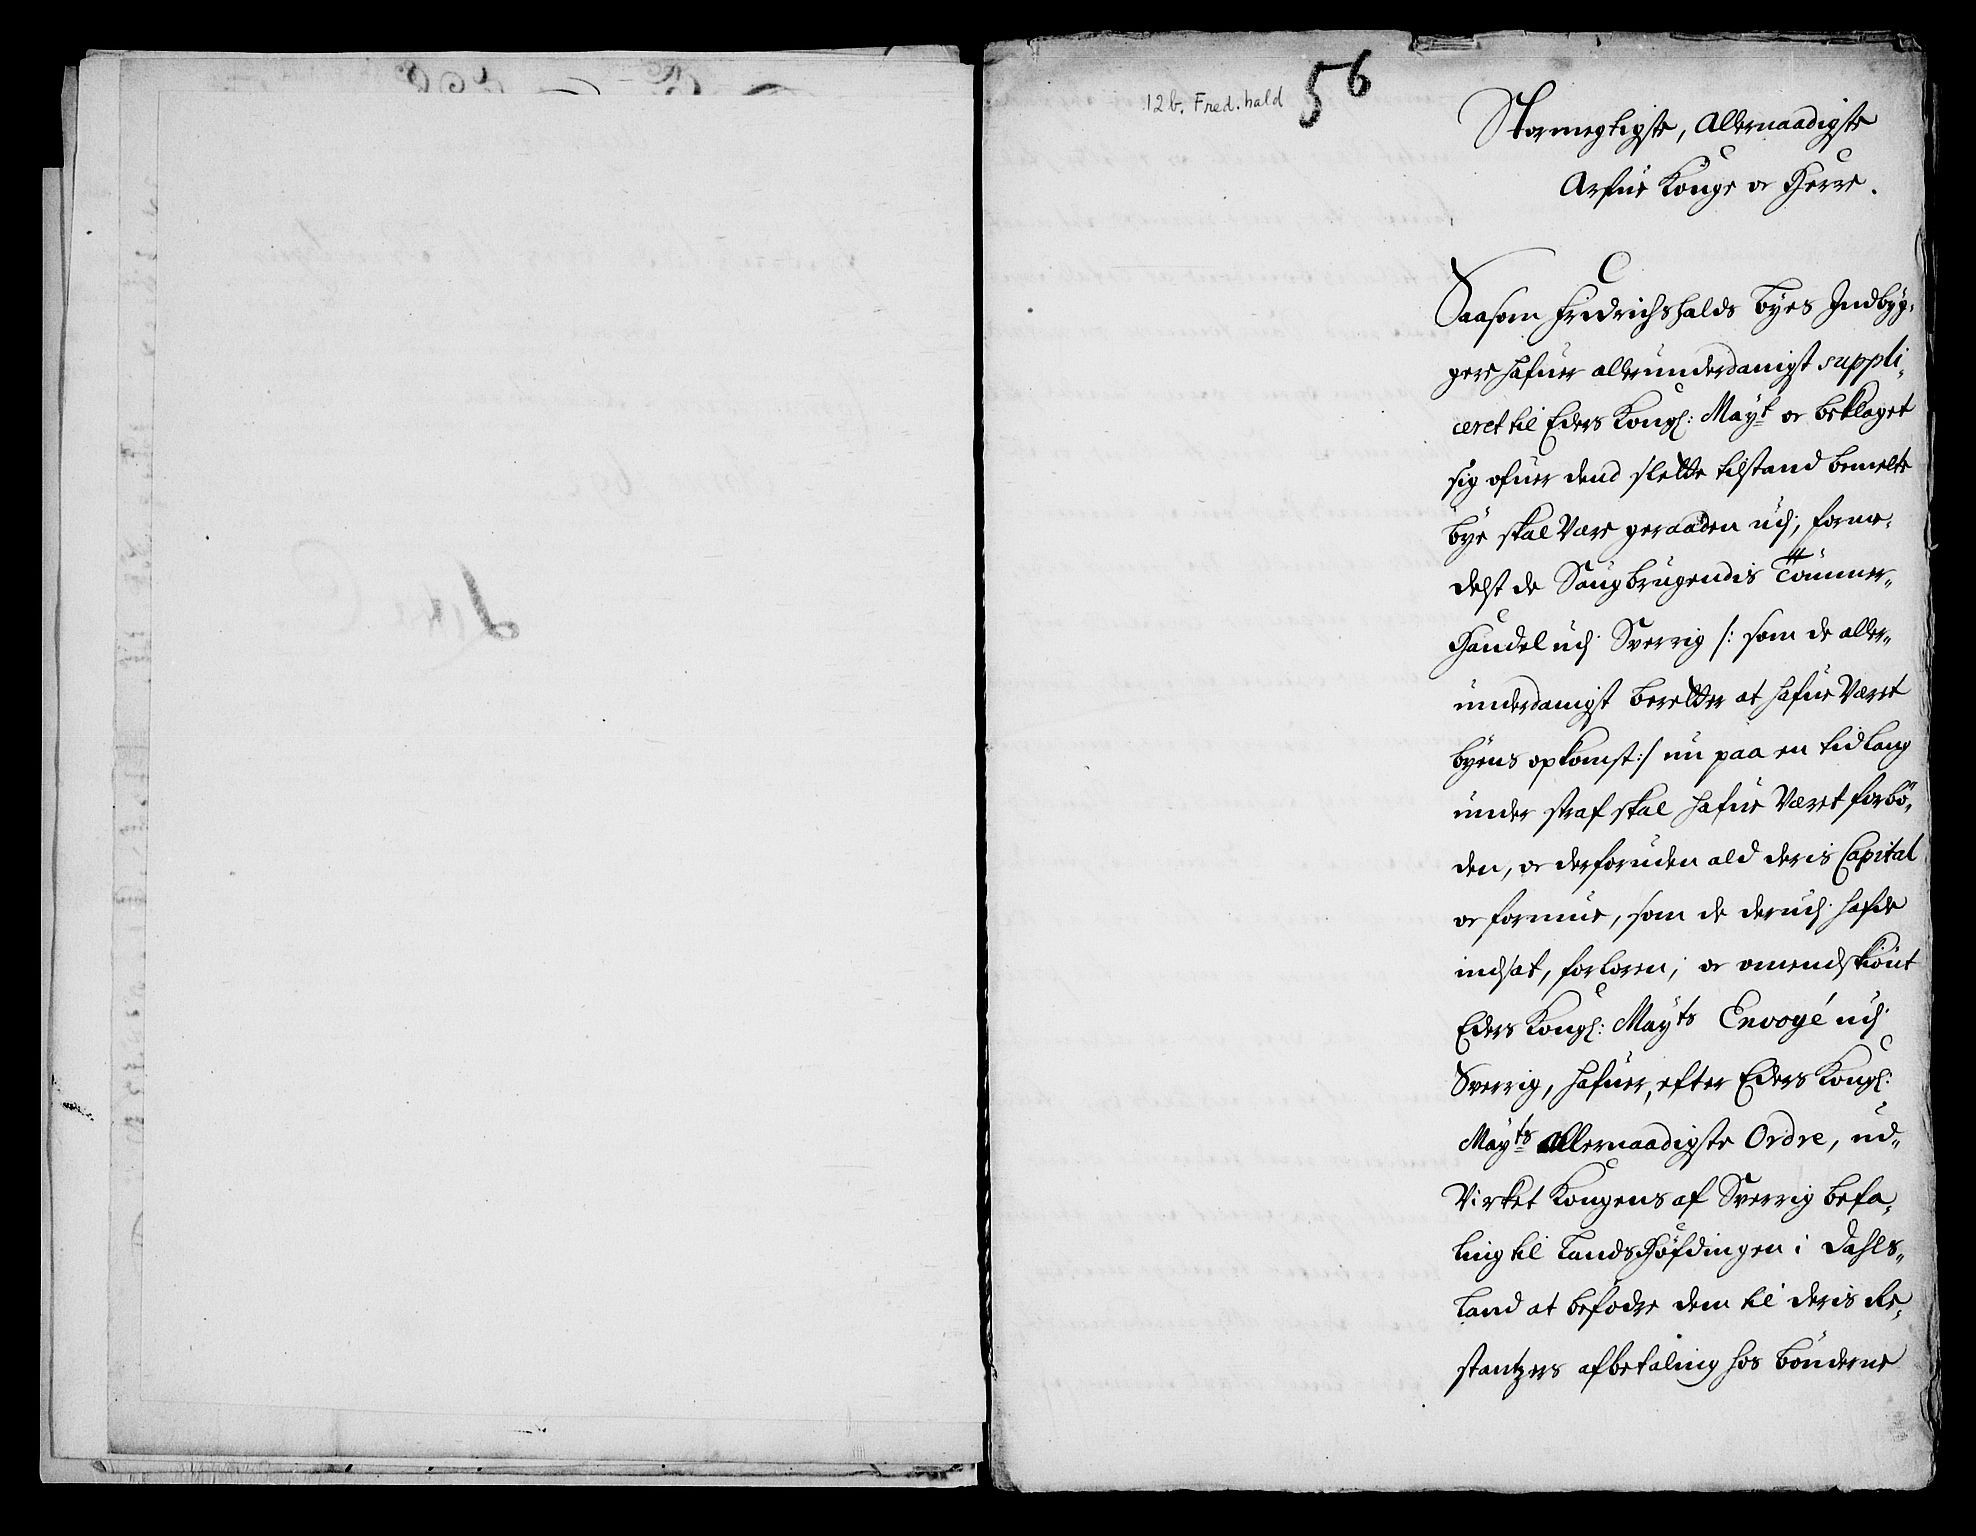 12b. Fred.hald
56
Stormegtigste, Allernaadigste
Arfue Konge oc Herre.
Saasom Fridrichshalds Byes Indbyg-
gere hafuer allerunderdanigst suppli-
ceret til Eders Kongl: Mayt oc beklaget
sig ofuer dend slette tilstand bemelte
bye skal være geraaden udj, forme-
delst de Saugbrugendis Tömmer-
Handel udj Sverrig /: som de aller-
underdanigst beretter at hafue været
byens opkomst :/ nu paa en tid lang
under straf skal hafue været forbö-
den, oc derforuden ald deris Capital
oc formue, som de derudj hafde
indsat, forloren; oc omendskiönt
Eders Kongl: Mayts Envoyé udj
Sverrig, hafuer, efter Eders Kongl:
Mayts allernaadigste Ordre, ud-
virket Kongens af Sverrig befa-
ling til LandsHöfdingen i Dahls-
land at befodre dem til deris Re-
stantzers afbetaling hos Bönderne